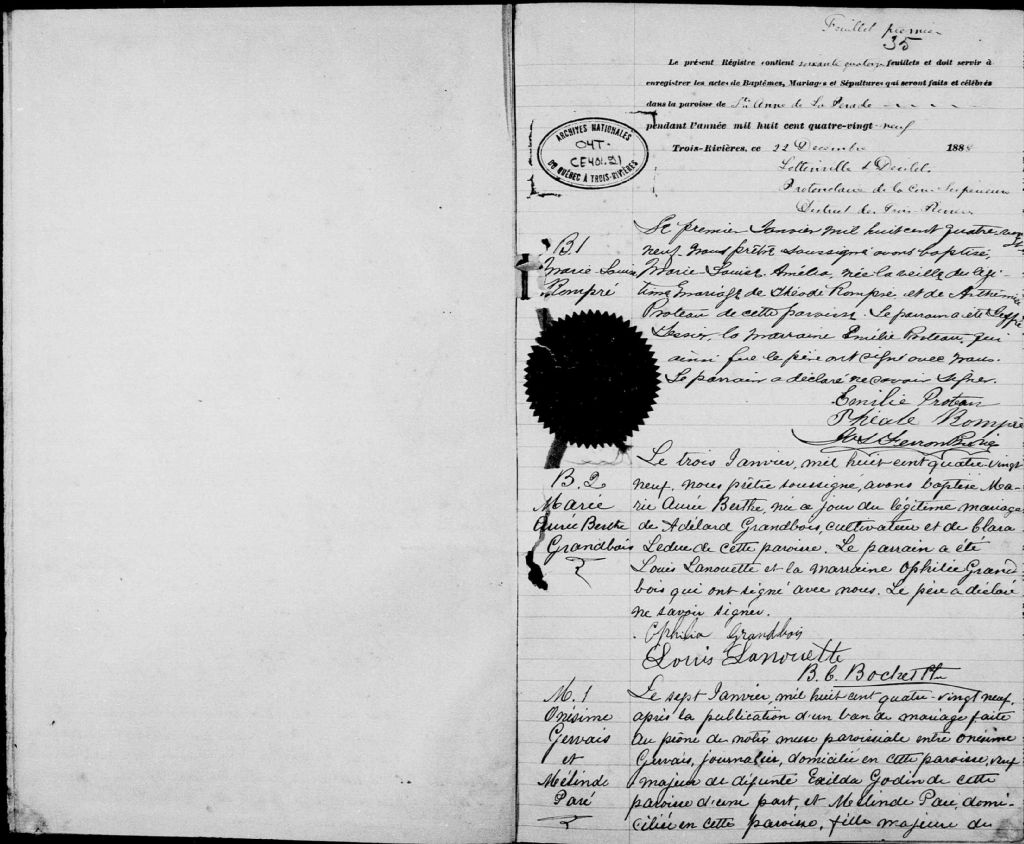 Feuillet premier
35
Le présent Régistre contient soixante quatorze feuillets et doit servir à
enregistrer les actes de Baptêmes, Mariages et Sépultures qui seront faits et célébrés
dans la paroisse de Ste Anne de La Perade
pendant l'année mil huit cent quatre-vingt-neuf
Trois-Rivières, ce 22 Decembre 1888
Protonotaire de la Cour Superieure
District des Trois Rivieres
ARCHIVES NATIONALES
O4T-
CE401-
DU QUÉBEC À TROIS-RIVIÈRES
B.1
Marie Louise
Rompré
Le premier Janvier mil huit cent quatre-vingt
neuf, nous prêtre soussigné avons baptisé,
Marie-Louise-Amélia, née la veille du légi-
time mariage de Théode Rompré et de Arthémise
Proteau de cette paroisse. Le parrain a été
Tessier, la marraine Emilie Proteau, qui
ainsi que le père ont signé avec nous.
Le parrain a déclaré ne savoir signer.
Emilie Proteau
Théode Rompré
B.2
Marie
Aurée Berthe
Grandbois
Le trois Janvier, mil huit cent quatre vingt
neuf, nous prêtre soussigné, avons baptisé Ma-
rie Aurée Berthe, née ce jour du légitime mariage
de Adélard Grandbois, cultivateur et de Clara
Leduc de cette paroisse. Le parrain a été
Louis Lanouette et la marraine Ophilie Grand
bois qui ont signé avec nous. Le père a déclaré
ne savoir signer.
Ophilia Grandbois
Louis Lanouette
B. C. Bochette
M.1
Onésime
Gervais
et
Mélinde
Paré
Le sept Janvier, mil huit cent quatre-vingt neuf,
après la publication d'un ban de mariage faite
au prône de notre messe paroissiale entre Onésime
Gervais, journalier, domicilié en cette paroisse, veuf
majeur de défunte Exilda Godin de cette
paroisse d'une part, et Melinde Paré, domi-
ciliée en cette paroisse, fille majeure de